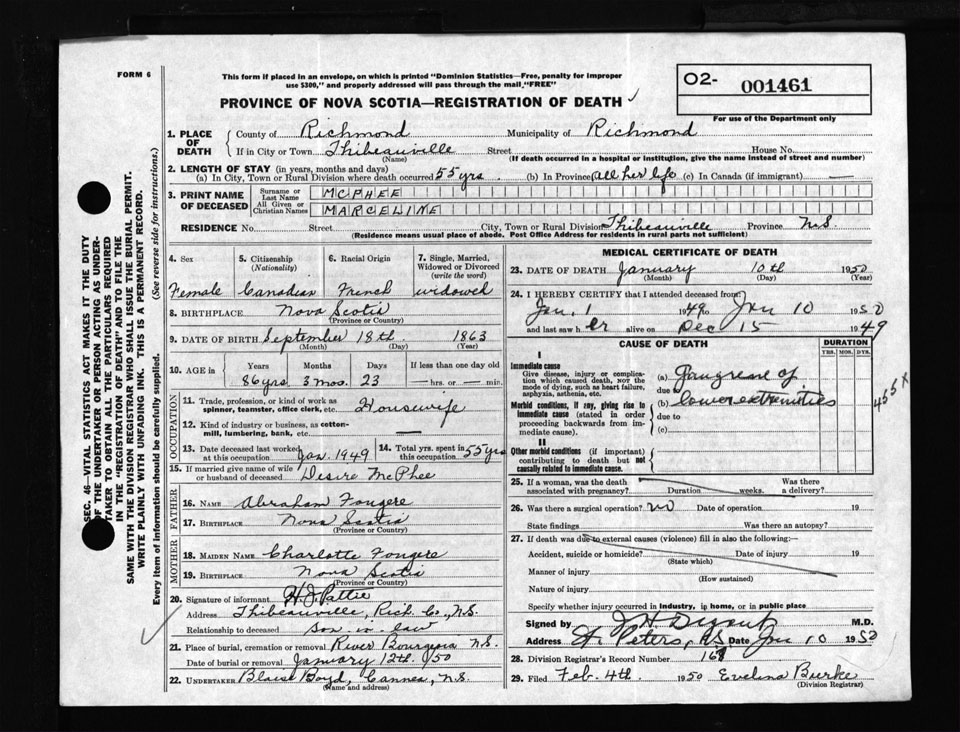 FORM 6
This form if placed in an envelope, on which is printed "Dominion Statistics—Free, penalty for improper
use $300," and properly addressed will pass through the mail "FREE"
PROVINCE OF NOVA SCOTIA—REGISTRATION OF DEATH
O2- 001461
For use of the Department only
SEC. 46—VITAL STATISTICS ACT MAKES IT THE DUTY
OF THE UNDERTAKER OR PERSON ACTING AS UNDER-
TAKER TO OBTAIN ALL THE PARTICULARS REQUIRED
IN THE "REGISTRATION OF DEATH" AND TO FILE THE
SAME WITH THE DIVISION REGISTRAR WHO SHALL ISSUE THE BURIAL PERMIT.
WRITE PLAINLY WITH UNFADING INK. THIS IS A PERMANENT RECORD.
Every item of information should be carefully supplied. (See reverse side for instructions.)
1. PLACE OF DEATH County of Richmond Municipality of Richmond
If in City or Town Thibeauville Street House No.
(Name) (If death occurred in a hospital or institution, give the name instead of street and number)
2. LENGTH OF STAY (in years, months and days)
(a) In City, Town or Rural Division where death occurred 55 yrs. (b) In Province all her life (c) In Canada (if immigrant) —
3. PRINT NAME OF DECEASED Surname or Last Name MCPHEE
All Given or Christian Names MARCELINE
RESIDENCE No. Street City, Town or Rural Division Thibeauville Province N.S.
(Residence means usual place of abode. Post Office Address for residents in rural parts not sufficient)
4. Sex 5. Citizenship (Nationality) 6. Racial Origin 7. Single, Married, Widowed or Divorced (write the word)
Female Canadian French widowed
8. BIRTHPLACE Nova Scotia
(Province or Country)
9. DATE OF BIRTH September 18th 1863
(Month) (Day) (Year)
10. AGE in Years Months Days If less than one day old
86 yrs 3 mos. 23 — hrs. or — min.
OCCUPATION
11. Trade, profession, or kind of work as spinner, teamster, office clerk, etc. Housewife
12. Kind of industry or business, as cotton-mill, lumbering, bank, etc. —
13. Date deceased last worked at this occupation Jan. 1949 14. Total yrs. spent in this occupation 55 yrs
15. If married give name of wife or husband of deceased Desire McPhee
FATHER
16. NAME Abraham Fougere
17. BIRTHPLACE Nova Scotia
(Province or Country)
MOTHER
18. MAIDEN NAME Charlotte Fougere
19. BIRTHPLACE Nova Scotia
(Province or Country)
20. Signature of informant H J Pattie
Address Thibeauville, Rich. Co., N.S.
Relationship to deceased Son-in-law
21. Place of burial, cremation or removal River Bourgeois N.S.
Date of burial or removal January 12th. 1950
22. UNDERTAKER Blaise Boyd, Cannes, N.S.
(Name and address)
MEDICAL CERTIFICATE OF DEATH
23. DATE OF DEATH January 10th 1950
(Month) (Day) (Year)
24. I HEREBY CERTIFY that I attended deceased from
Jan. 1 1949 to Jan 10 1950
and last saw her alive on Dec 15 1949
CAUSE OF DEATH DURATION
YRS. MOS. DYS.
I
Immediate cause
Give disease, injury or complication which caused death, not the mode of dying, such as heart failure, asphyxia, asthenia, etc.
(a) Gangrene of
due to
Morbid conditions, if any, giving rise to immediate cause (stated in order proceeding backwards from immediate cause).
(b) lower extremities
due to
(c)
455 x
II
Other morbid conditions (if important) contributing to death but not causally related to immediate cause.
25. If a woman, was the death associated with pregnancy? Duration weeks. Was there a delivery?
26. Was there a surgical operation? no Date of operation 19
State findings Was there an autopsy?
27. If death was due to external causes (violence) fill in also the following:—
Accident, suicide or homicide? Date of injury 19
(State which)
Manner of injury
(How sustained)
Nature of injury
Specify whether injury occurred in industry, in home, or in public place
Signed by J H M.D.
Address St. Peters, N.S. Date Jan 10 1950
28. Division Registrar's Record Number
29. Filed Feb. 4th. 1950 Evelina Burke
(Division Registrar)